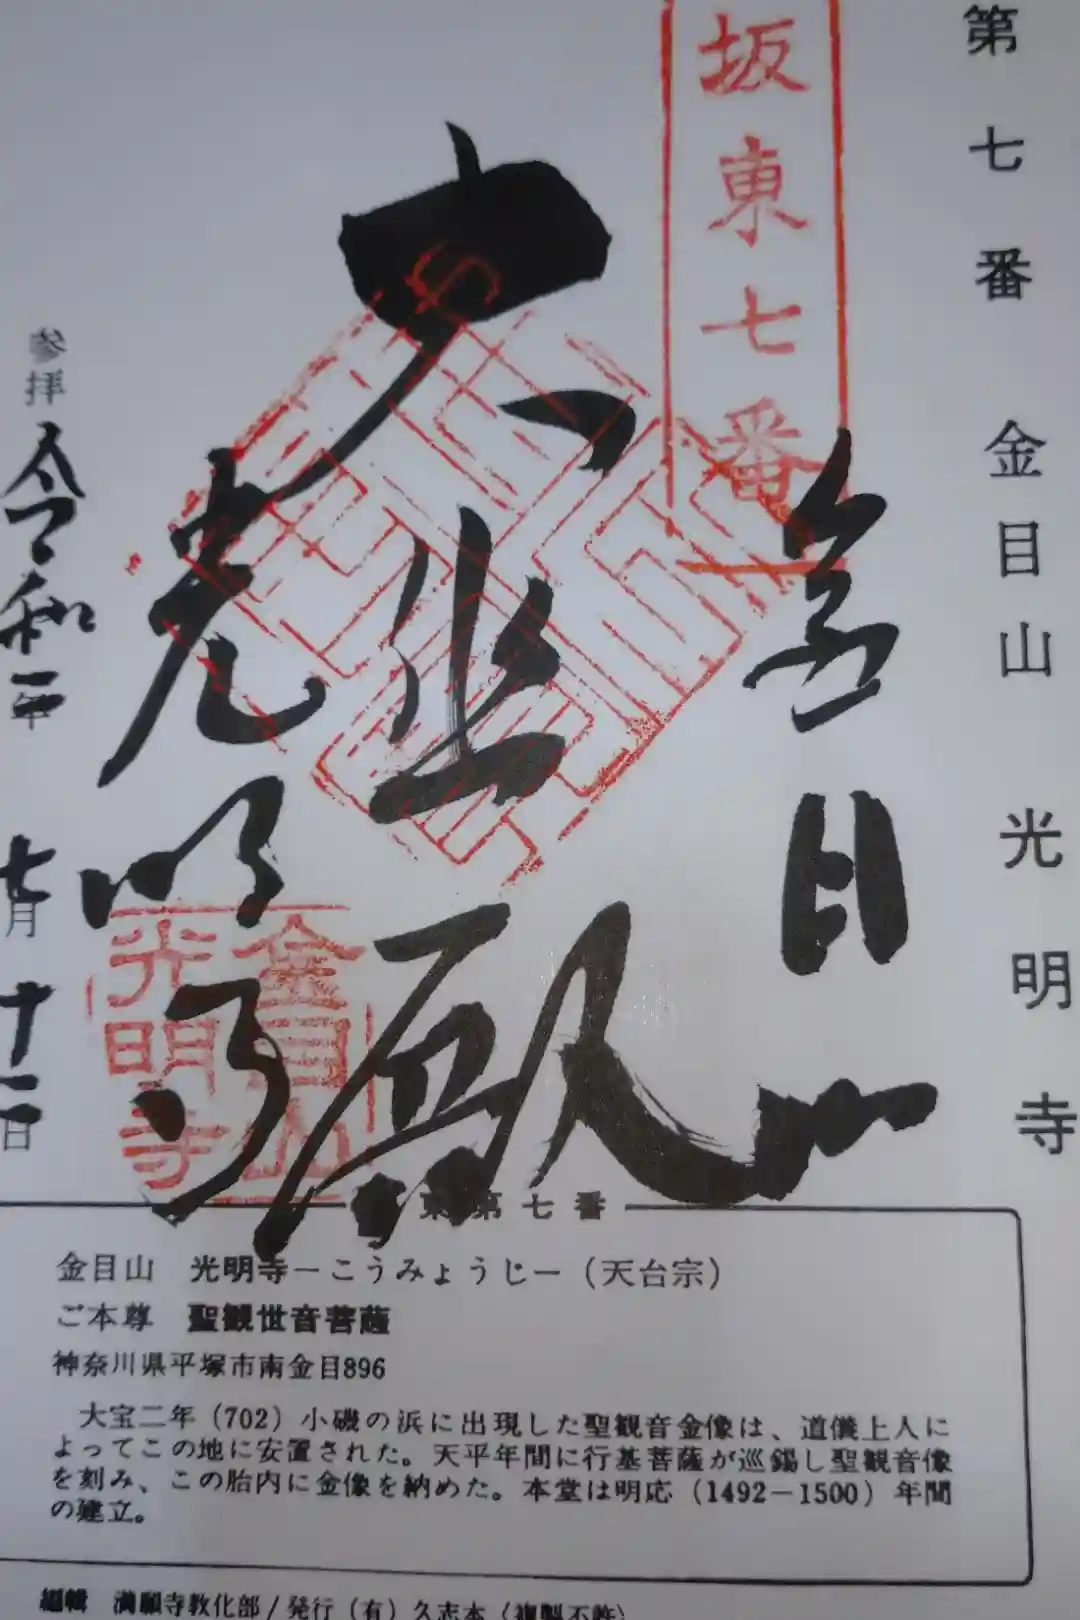 第七番 金目山 光明寺
坂東七番
金目山
大悲殿
光明寺
金目山
光明寺
参拝 令和二年 七月 十二日
東第七番
金目山 光明寺－こうみょうじ－（天台宗）
ご本尊 聖観世音菩薩
神奈川県平塚市南金目896
大宝二年（702）小磯の浜に出現した聖観音金像は、道儀上人に
よってこの地に安置された。天平年間に行基菩薩が巡錫し聖観音像
を刻み、この胎内に金像を納めた。本堂は明応（1492－1500）年間
の建立。
編輯 満願寺教化部/発行（有）久志本（複製不許）